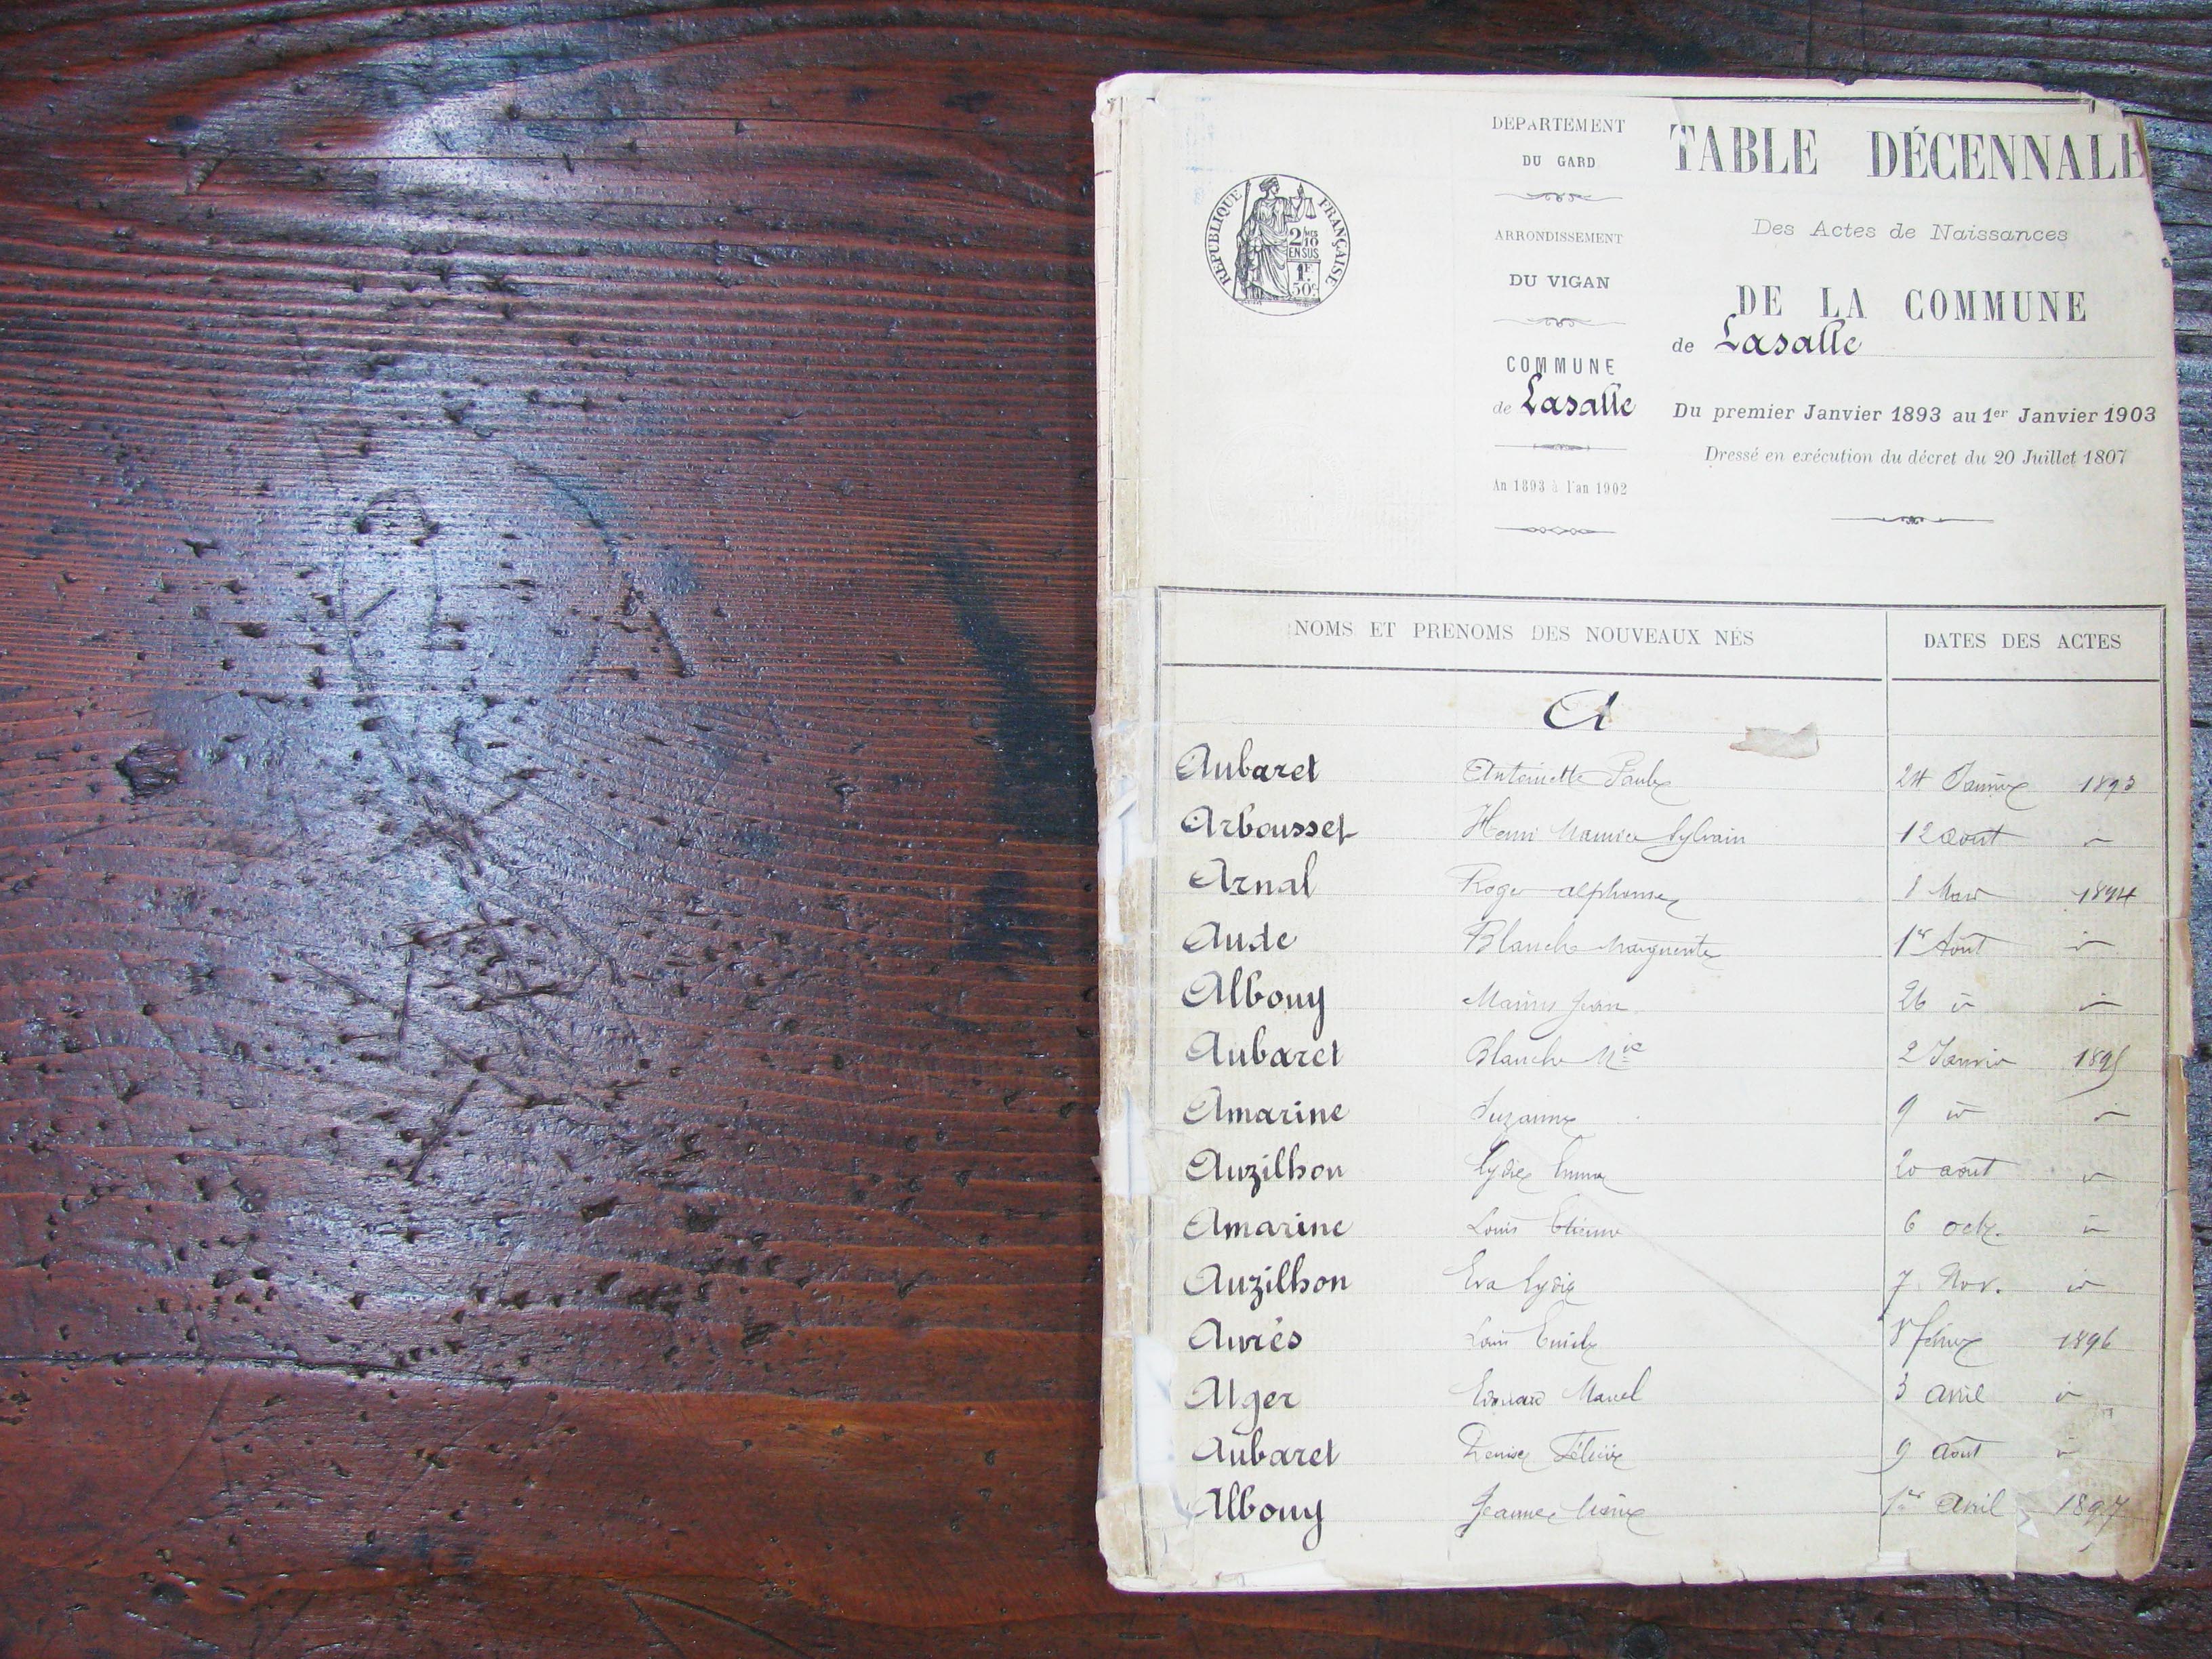 RÉPUBLIQUE FRANÇAISE
2/10 MES
EN SUS
1F.
50c
DEPARTEMENT
DU GARD
ARRONDISSEMENT
DU VIGAN
COMMUNE
de Lasalle
An 1893 à l'an 1902
TABLE DÉCENNALE
Des Actes de Naissances
DE LA COMMUNE
de Lasalle
Du premier Janvier 1893 au 1er Janvier 1903
Dressé en exécution du décret du 20 Juillet 1807
NOMS ET PRENOMS DES NOUVEAUX NÉS DATES DES ACTES
A
Aubaret Antoinette Paule 24 Janvier 1893
Arbousset Henri Maurice Sylvain 12 aout
Arnal Roger alphonse 8 Mars 1894
Aude Blanche Marguerite 1er Août id
Albouy Jean 26 id id
Aubaret Blanche Mie 2 Janvier 1895
Amarine Suzanne 9 id id
Auzilhon Lydie Emma 20 août id
Amarine Louis Etienne 6 octe. id
Auzilhon Eva Lydie 7 Nov. id
Avrés Louis Emile 8 février 1896
Alger Edouard Marcel 3 avril id
Aubaret Denise 9 Août id
Albouy Jeanne 1er Avril 1897